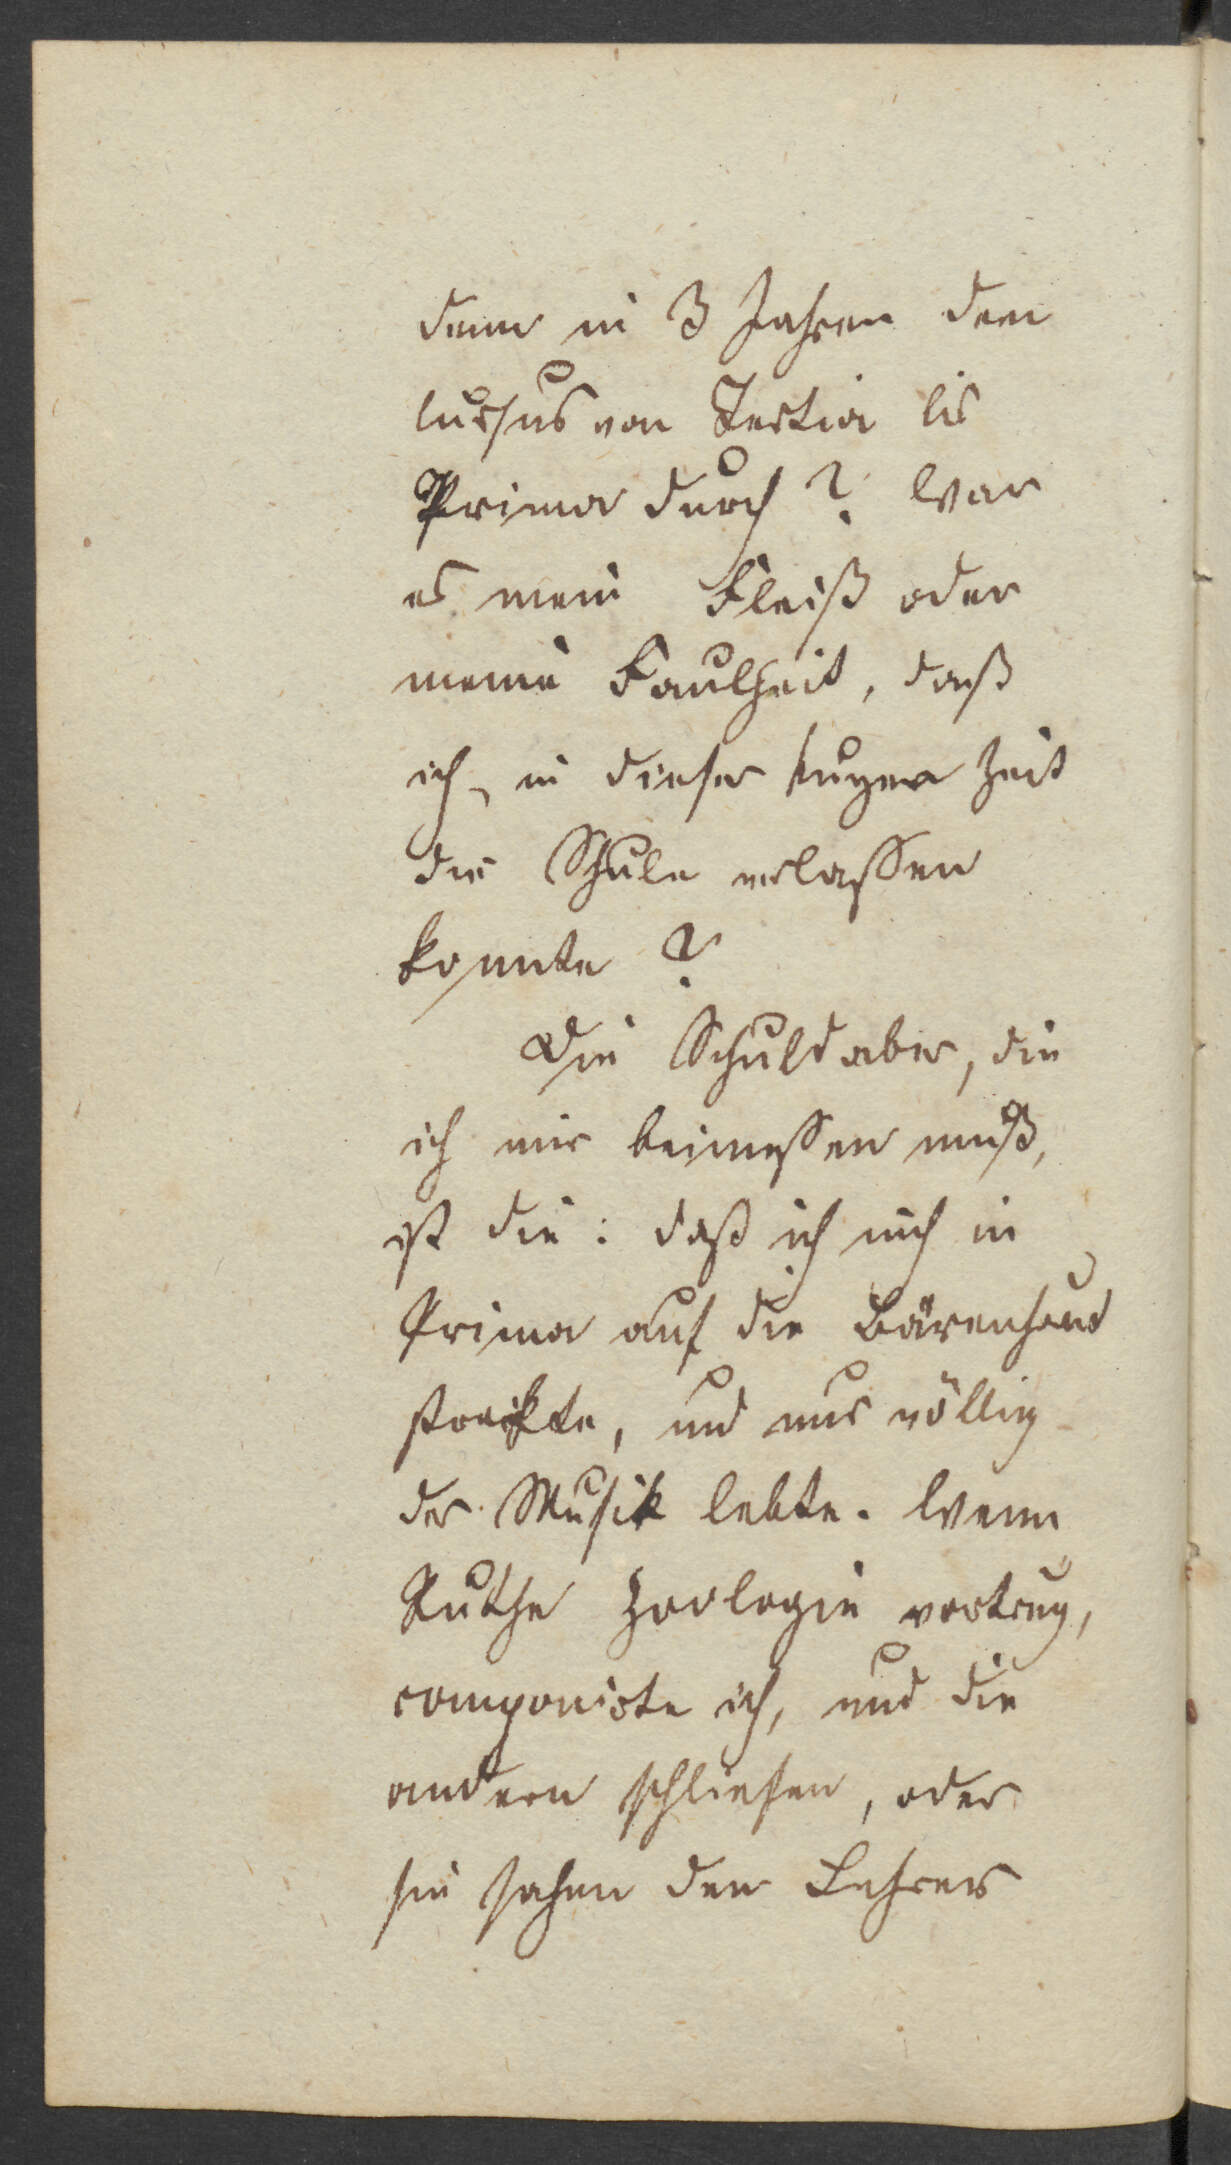 dann in 3 Jahren den
Cursus von Tertia bis
Prima durch? War
es mein Fleiß oder
meine Faulheit, daß
ich, in dieser kurzen Zeit
die Schule verlassen
konnte?
Die Schuld aber, die
ich mir beimessen muß,
ist die: daß ich mich in
Prima auf die Bärenhaut
streckte, und nur völlig
der Musik lebte. Wenn
Ruthe Zoologie vortrug,
componirte ich, und die
andern schliefen, oder
sie sahen den Lehrer